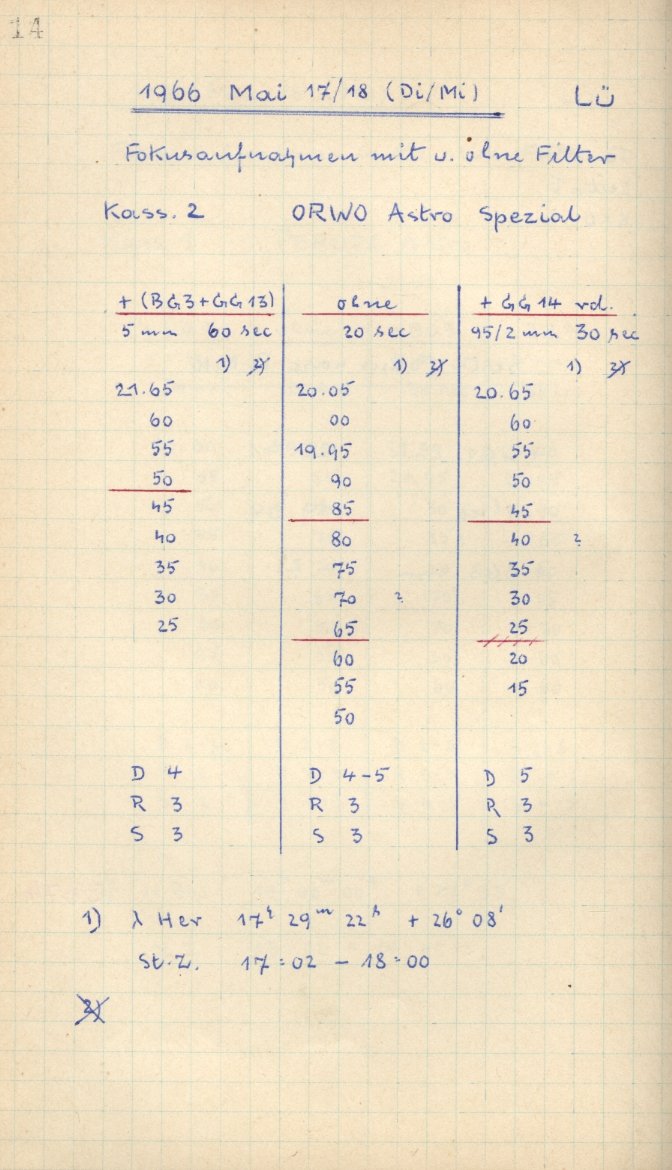 14
1966 Mai 17/18 (Di/Mi) Lü
Fokusaufnahmen mit u. ohne Filter
Kass. 2 ORWO Astro Spezial
+ (BG3+GG13) ohne + GG14 rd.
5 mm 60 sec 20 sec 95/2 mm 30 sec
1) 2) 1) 2) 1) 2)
21.65 20.05 20.65
60 00 60
55 19.95 55
50 90 50
45 85 45
40 80 40 ?
35 75 35
30 70 ? 30
25 65 25
60 20
55 15
50
D 4 D 4-5 D 5
R 3 R 3 R 3
S 3 S 3 S 3
1) λ Her 17ʰ 29ᵐ 22ˢ + 26° 08'
St.Z. 17:02 - 18:00
2)